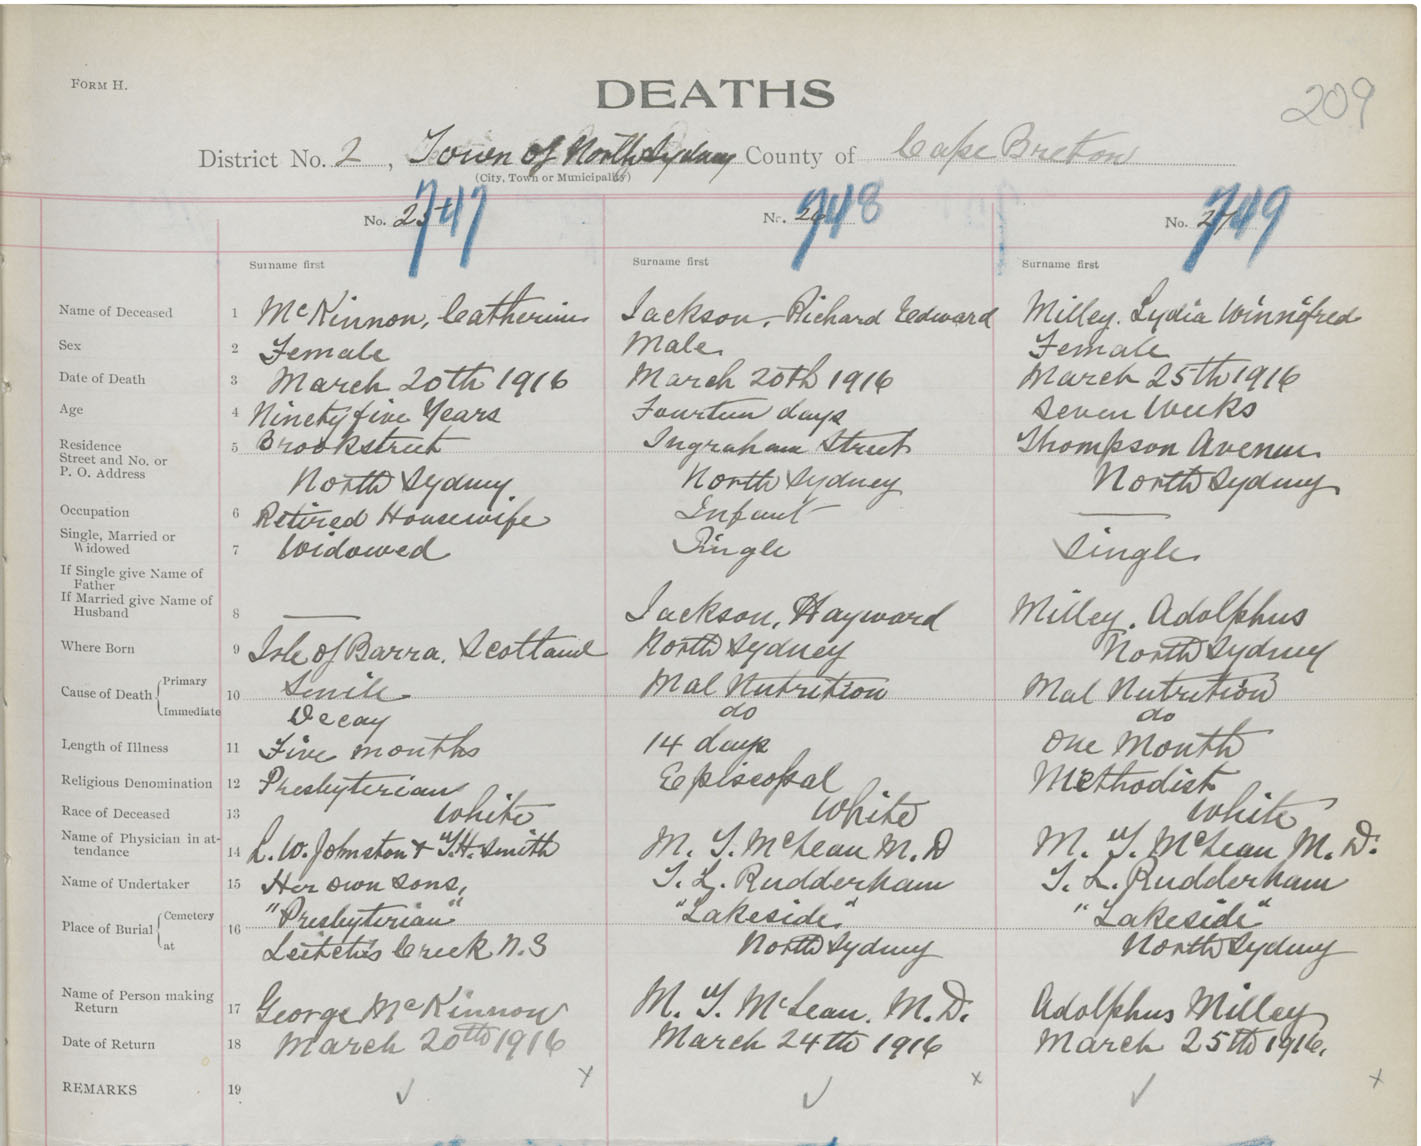 FORM H.
DEATHS
209
District No. 2, Town of North Sydney County of Cape Breton
(City, Town or Municipality)
No. 25 747 No. 26 748 No. 27 749
Surname first Surname first Surname first
Name of Deceased 1 McKinnon, Catherine Jackson, Richard Edward Milley. Lydia Winnifred
Sex 2 Female Male. Female
Date of Death 3 March 20th 1916 March 20th 1916 March 25th 1916
Age 4 Ninety five Years Fourteen days Seven Weeks
Residence 5 Brookstreet Ingraham Street Thompson Avenue
Street and No. or
P. O. Address North Sydney. North Sydney North Sydney
Occupation 6 Retired Housewife Infant —
Single, Married or
Widowed 7 Widowed Single Single.
If Single give Name of
Father
If Married give Name of
Husband 8 — Jackson, Hayward Milley. Adolphus
Where Born 9 Isle of Barra. Scotland North Sydney North Sydney
Cause of Death Primary 10 Senile Mal Nutrition Mal Nutrition
Immediate Decay do do
Length of Illness 11 Five months 14 days One Month
Religious Denomination 12 Presbyterian Episcopal Methodist
Race of Deceased 13 White White White
Name of Physician in at-
tendance 14 L. W. Johnston & T.H. Smith M. T. McLean M.D M. T. McLean M.D.
Name of Undertaker 15 Her own sons, T. L. Rudderham T. L. Rudderham
Place of Burial Cemetery 16 "Presbyterian" "Lakeside" "Lakeside"
at Leitches Creek N.S North Sydney North Sydney
Name of Person making
Return 17 George McKinnon M. T. McLean. M.D. Adolphus Milley
Date of Return 18 March 20th 1916 March 24th 1916 March 25th 1916.
REMARKS 19 ✓ x ✓ x ✓ x